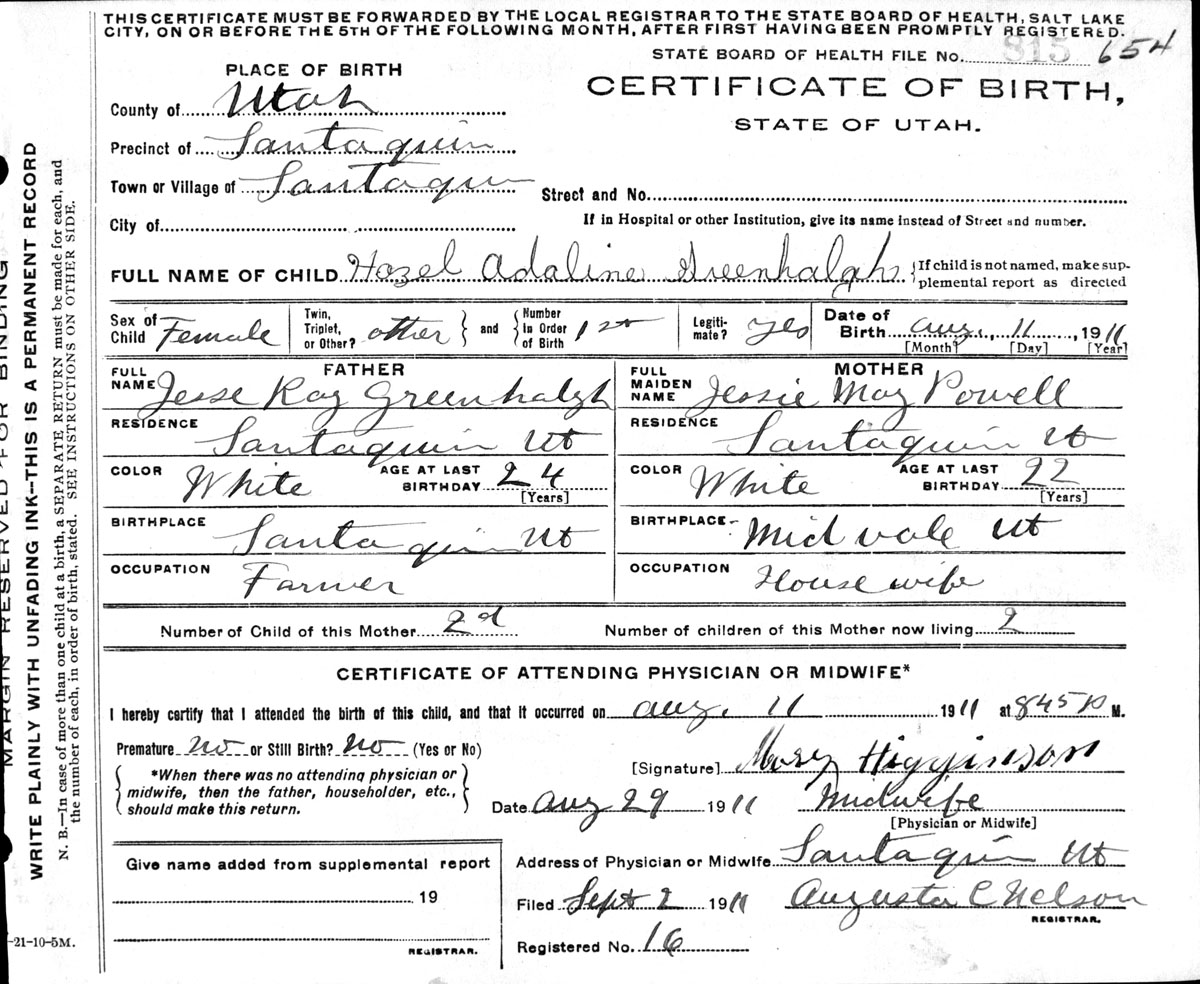 THIS CERTIFICATE MUST BE FORWARDED BY THE LOCAL REGISTRAR TO THE STATE BOARD OF HEALTH, SALT LAKE
CITY, ON OR BEFORE THE 5TH OF THE FOLLOWING MONTH, AFTER FIRST HAVING BEEN PROMPTLY REGISTERED.
STATE BOARD OF HEALTH FILE No. 815 654
PLACE OF BIRTH
CERTIFICATE OF BIRTH,
STATE OF UTAH.
County of Utah
Precinct of Santaquin
Town or Village of Santaquin
Street and No.
City of
If in Hospital or other Institution, give its name instead of Street and number.
FULL NAME OF CHILD Hazel Adaline Greenhalgh {If child is not named, make sup-
plemental report as directed
Sex of Child Female
Twin, Triplet, or Other? other } and { Number In Order of Birth 1st
Legiti-mate? yes
Date of Birth Aug., 11, 1911
[Month] [Day] [Year]
FATHER
FULL NAME Jesse Ray Greenhalgh
RESIDENCE Santaquin Ut
COLOR White AGE AT LAST BIRTHDAY 24
[Years]
BIRTHPLACE Santaquin Ut
OCCUPATION Farmer
MOTHER
FULL MAIDEN NAME Jessie May Powell
RESIDENCE Santaquin Ut
COLOR White AGE AT LAST BIRTHDAY 22
[Years]
BIRTHPLACE Midvale Ut
OCCUPATION House wife
Number of Child of this Mother 2d Number of children of this Mother now living 2
CERTIFICATE OF ATTENDING PHYSICIAN OR MIDWIFE*
I hereby certify that I attended the birth of this child, and that it occurred on Aug. 11 1911 at 845 P M.
Premature no or Still Birth? no (Yes or No)
{ *When there was no attending physician or
midwife, then the father, householder, etc.,
should make this return. }
[Signature] Mary Higginson
Date Aug 29 1911 Midwife
[Physician or Midwife]
Give name added from supplemental report
19
REGISTRAR.
Address of Physician or Midwife Santaquin Ut
Filed Sept 2 1911 Augusta C Nelson
REGISTRAR.
Registered No. 16
-21-10-5M.
MARGIN RESERVED FOR BINDING
WRITE PLAINLY WITH UNFADING INK—THIS IS A PERMANENT RECORD
N. B.—In case of more than one child at a birth, a SEPARATE RETURN must be made for each, and
the number of each, in order of birth, stated. SEE INSTRUCTIONS ON OTHER SIDE.